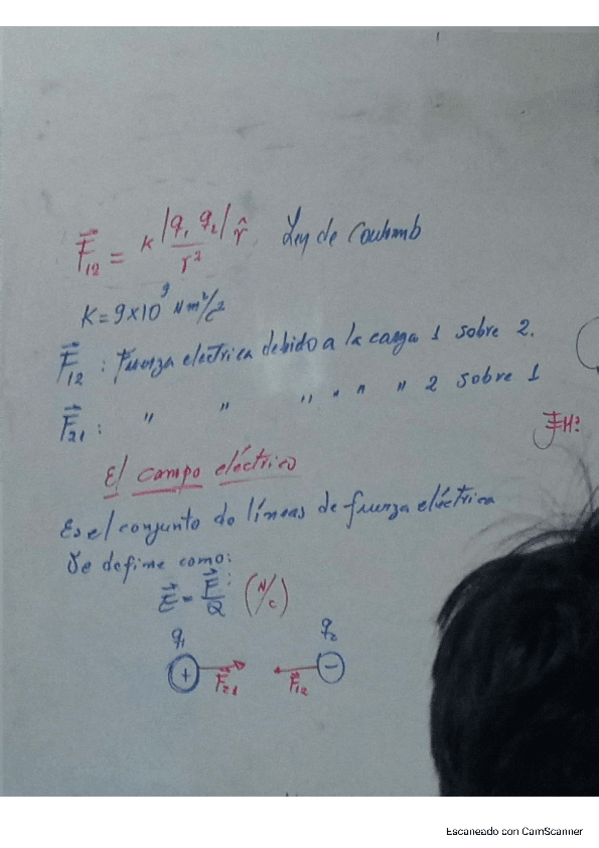 F⃗₁₂ = K |q₁ q₂| / r² r̂ Ley de Coulomb
K = 9x10⁹ Nm²/c²
F⃗₁₂ : Fuerza eléctrica debido a la carga 1 sobre 2.
F⃗₂₁ : " " " " " " 2 sobre 1
El campo eléctrico
Es el conjunto de líneas de fuerza eléctrica
Se define como:
E⃗ = F⃗/Q : (N/c)
q₁ q₂
+ F⃗₂₁ F⃗₁₂ −
Escaneado con CamScanner